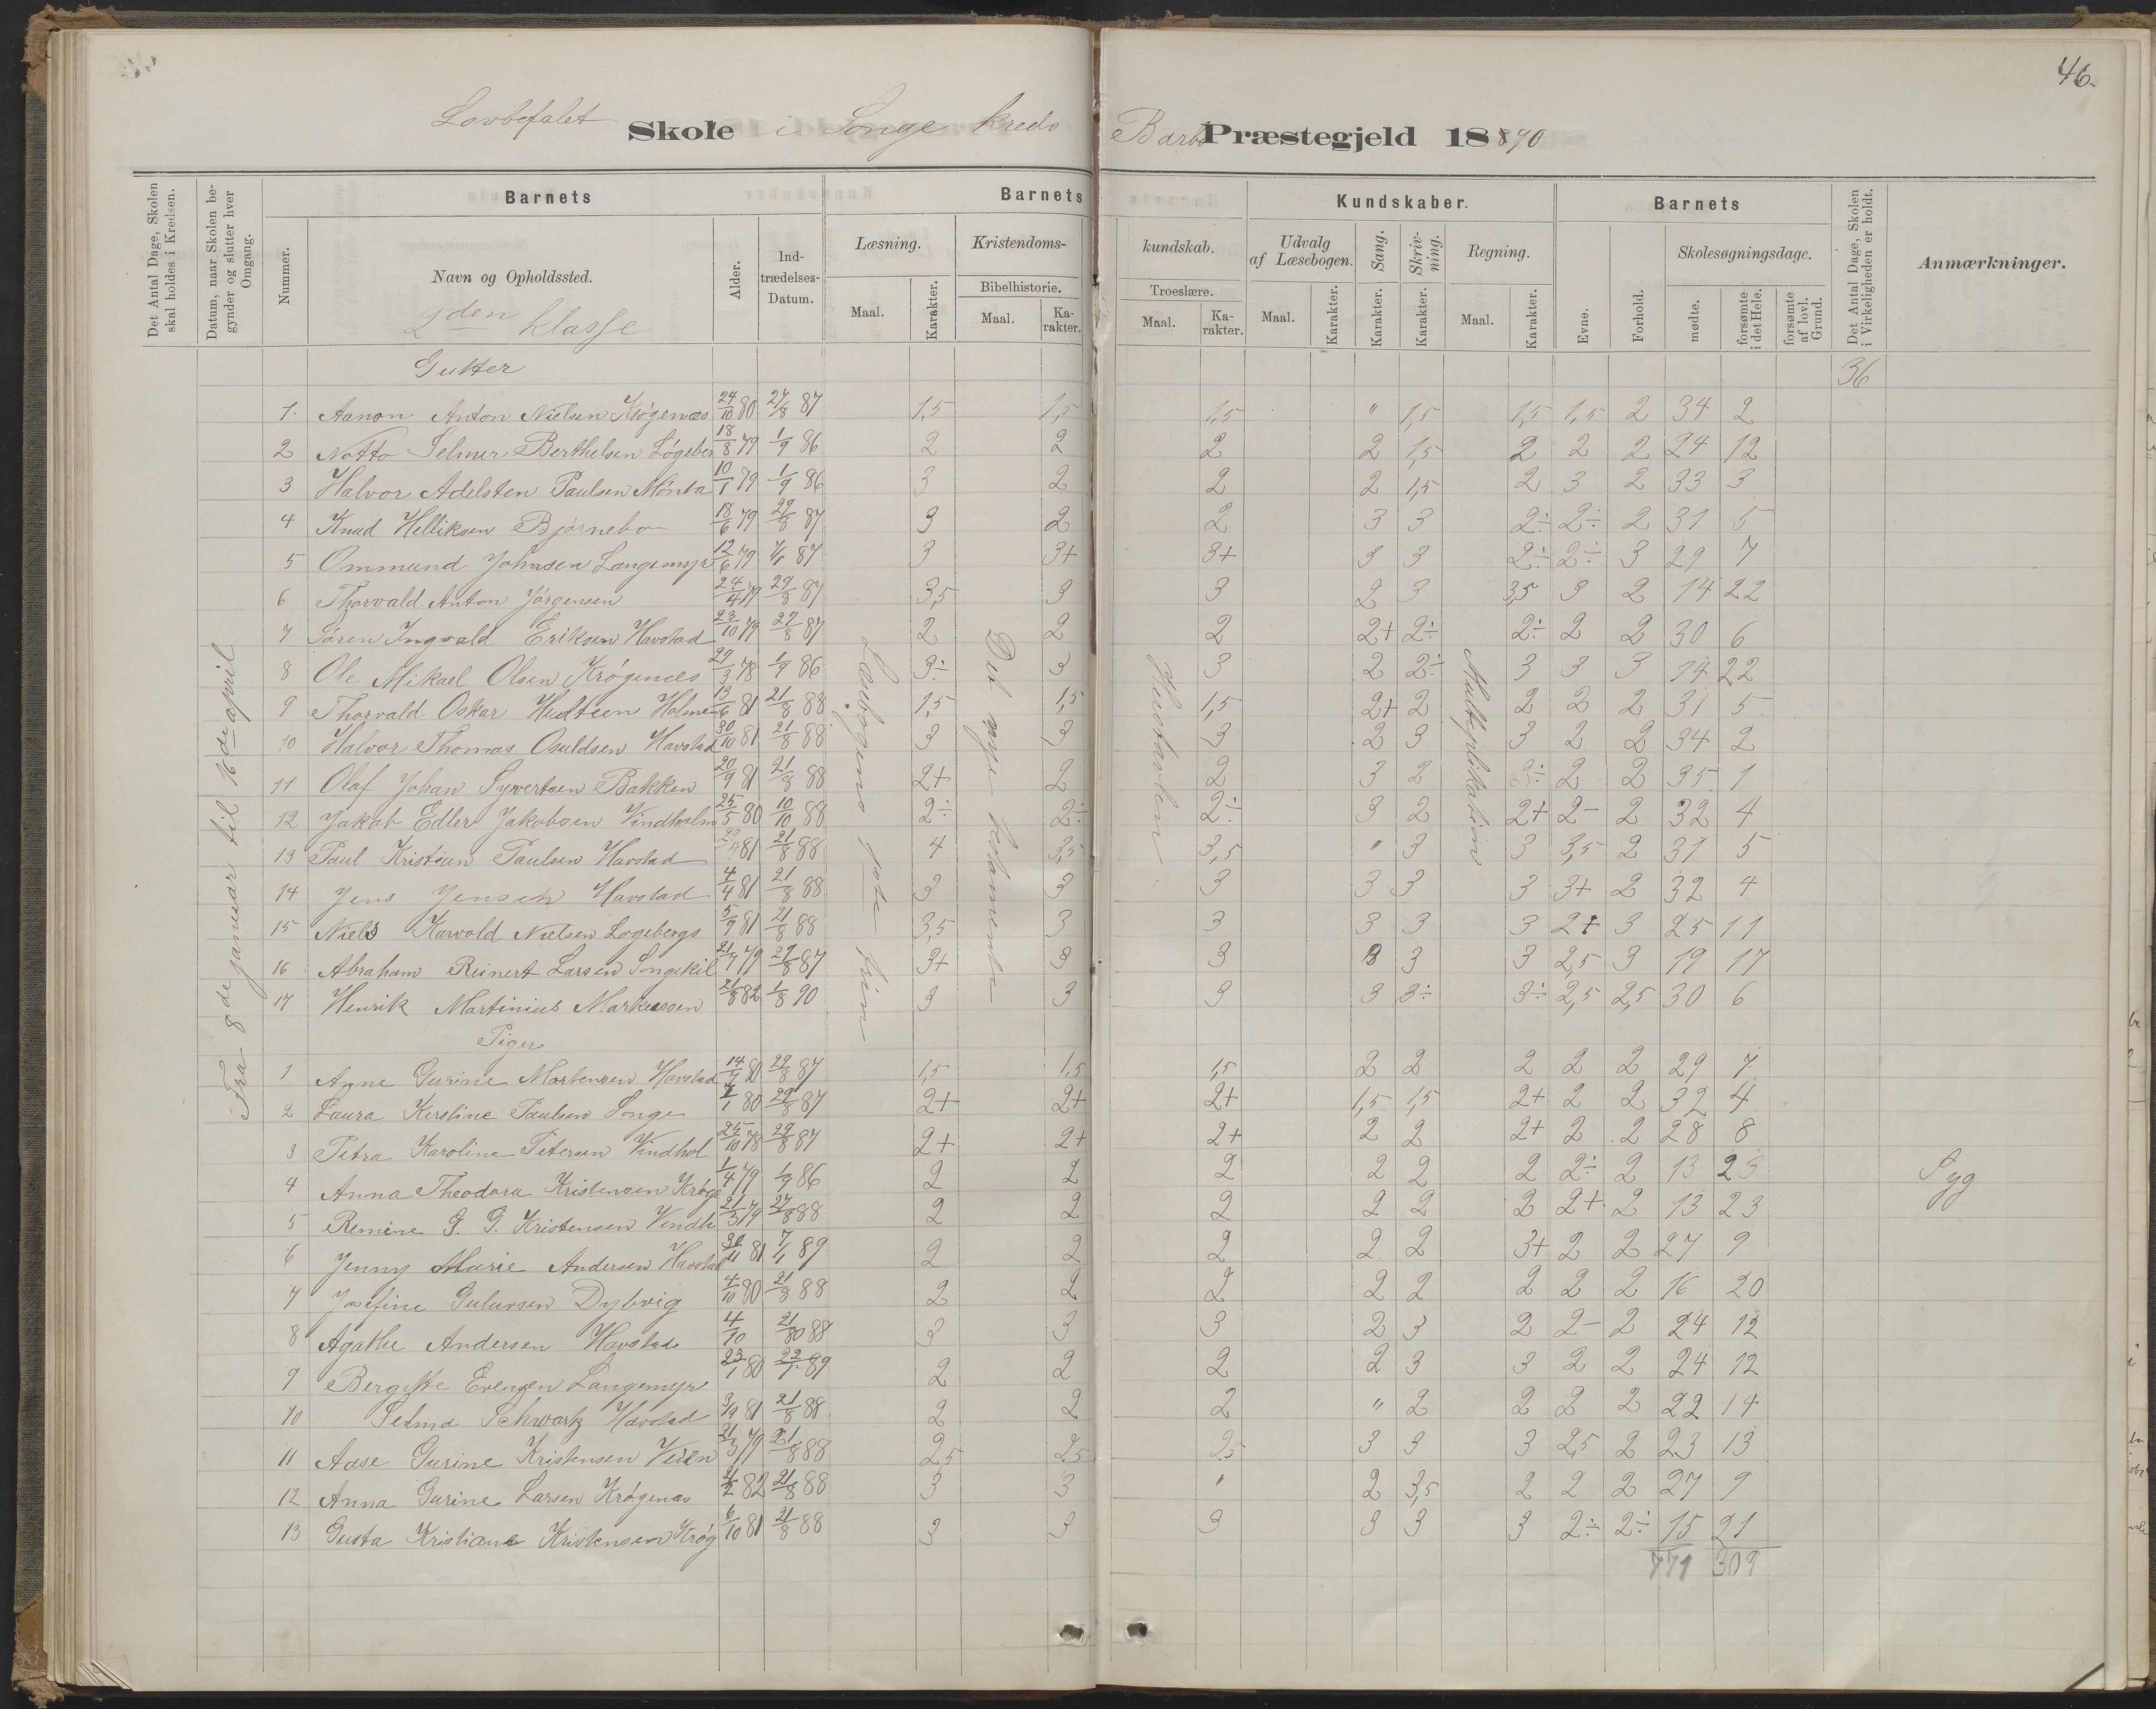 46.
Lovbefalet Skole i Songe kreds Barbo Præstegjeld 18890
Det Antal Dage, Skolen skal holdes i Kredsen.
Datum, naar Skolen begynder og slutter hver Omgang.
Barnets
Nummer.
Navn og Opholdssted.
Alder.
Indtrædelses-Datum.
Barnets Kundskaber.
Læsning.
Maal.
Karakter.
Kristendomskundskab.
Bibelhistorie.
Maal.
Karakter.
Troeslære.
Maal.
Karakter.
Udvalg af Læsebogen.
Maal.
Karakter.
Sang.
Karakter.
Skrivning.
Karakter.
Regning.
Maal.
Karakter.
Barnets
Evne.
Forhold.
Skolesøgningsdage.
mødte.
forsømte i det Hele.
forsømte af lovl. Grund.
Det Antal Dage, Skolen i Virkeligheden er holdt.
Anmærkninger.
2den klasse
Gutter 36
Fra 8de januar til 16de april
Læsebogens
Multiplikation
1. Aanon Anton Nielsen Krøgenæs 24/10 80 27/8 87 1,5 1,5 1,5 " 1,5 1,5 1,5 2 34 2
2 Notto Selmer Berthelsen Løgeber 18/8 79 1/9 86 2 2 2 2 1,5 2 2 2 24 12
3 Halvor Adelsten Paulsen Mønta 10/1 79 1/9 86 3 2 2 2 1,5 2 3 2 33 3
4 Knud Helliksen Bjørnebo 18/6 79 29/8 87 3 2 2 3 3 2÷ 2÷ 2 31 5
5 Ommund Johnsen Langemyr 12/6 79 7/1 87 3 3+ 3+ 3 3 2÷ 2÷ 3 29 7
6 Thorvald Anton Jørgensen 24/4 79 29/8 87 3,5 3 3 2 3 3,5 3 2 14 22
7 Søren Ingvald Eriksen Havstad 23/10 79 27/8 87 2 2 2 2+ 2÷ 2÷ 2 2 30 6
8 Ole Mikael Olsen Krøgenæs 29/3 78 1/9 86 3÷ 3 3 2 2÷ 3 3 3 14 22
9 Thorvald Oskar Holmen 13/6 81 21/8 88 1,5 1,5 1,5 2+ 2 2 2 2 31 5
10 Halvor Thomas Osuldsen Havstad 30/10 81 21/8 88 3 3 3 2 3 3 2 2 34 2
11 Olaf Johan Syvertsen Bakken 20/9 81 21/8 88 2+ 2 2 3 2 3÷ 2 2 35 1
12 Jakob Edler Jakobsen Vindholm 25/5 80 10/10 88 2÷ 2÷ 2÷ 3 2 2+ 2- 2 32 4
13 Paul Kristian Paulsen Havstad 81 21/8 88 4 3,5 3,5 " 3 3 3,5 2 31 5
14 Jens Jensen Havstad 4/4 81 21/8 88 3 3 3 3 3 3 3+ 2 32 4
15 Niels Karvold Nielsen Logebergs 5/9 81 21/8 88 3,5 3 3 3 3 3 2+ 3 25 11
16 Abraham Reinert Larsen Songekil 21/7 79 29/8 87 3+ 3 3 3 3 3 2,5 3 19 17
17 Henrik Martinius Markussen 21/8 82 1/8 90 3 3 3 3 3÷ 3÷ 2,5 2,5 30 6
Piger
1 Agne Gurine Mortensen Havstad 14/7 80 29/8 87 1,5 1,5 1,5 2 2 2 2 2 29 7
2 Laura Kirstine Paulsen Songe 2/1 80 29/8 87 2+ 2+ 2+ 1,5 1,5 2+ 2 2 32 4
3 Petra Karoline Petersen Vindhol 25/10 78 29/8 87 2+ 2+ 2+ 2 2 2+ 2 2 28 8
4 Anna Theodora Kristensen Krøge 1/4 79 1/9 86 2 2 2 2 2 2 2÷ 2 13 23 Syg
5 Remine G. G. Kristensen Vindh 21/3 79 27/8 88 2 2 2 2 2 2 2+ 2 13 23
6 Jenny Marie Andersen Havstad 30/11 81 7/1 89 2 2 2 2 2 3+ 2 2 27 9
7 Josefine Gulavsen Dybvig 4/10 80 21/8 88 2 2 2 2 2 2 2 2 16 20
8 Agathe Andersen Havstad 4/10 80 21/8 88 3 3 3 2 3 2 2- 2 24 12
9 Bergitte Evensen Langemyr 23/1 80 22/7 89 2 2 2 2 3 3 2 2 24 12
10 Selma Schwartz Havstad 3/9 81 21/8 88 2 2 2 " 2 2 2 2 22 14
11 Aase Gurine Kristensen 21/3 79 21/8 88 2,5 2,5 2,5 3 3 3 2,5 2 23 13
12 Anna Gurine Larsen Krøgenæs 4/2 82 21/8 88 3 3 " 2 3,5 2 2 2 27 9
13 Gusta Kristiane Kristensen Krøg 6/10 81 21/8 88 3 3 3 3 3 3 2÷ 2÷ 15 21
771 309